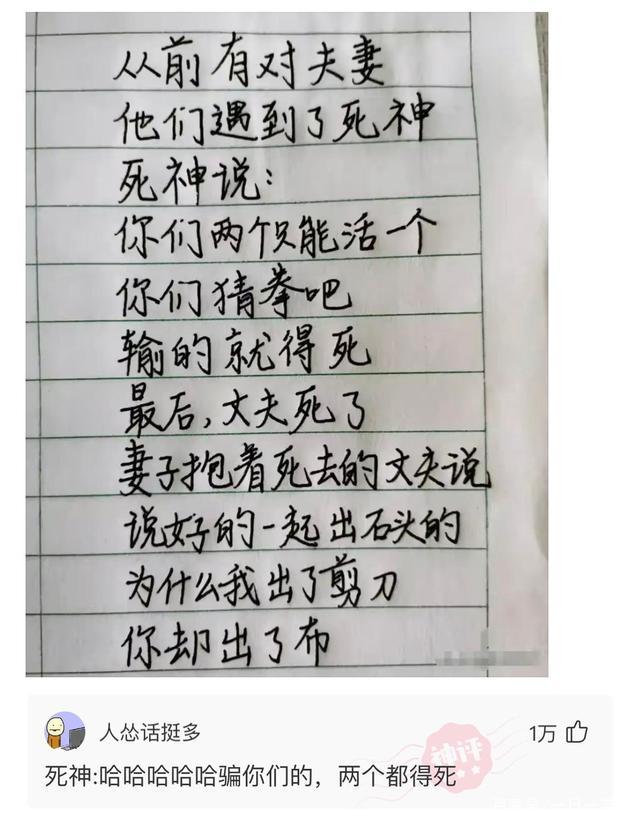 从前有对夫妻
他们遇到了死神
死神说：
你们两个只能活一个
你们猜拳吧
输的就得死
最后，丈夫死了
妻子抱着死去的丈夫说
说好的一起出石头的
为什么我出了剪刀
你却出了布
人怂话挺多
1万
神评
死神:哈哈哈哈哈骗你们的，两个都得死